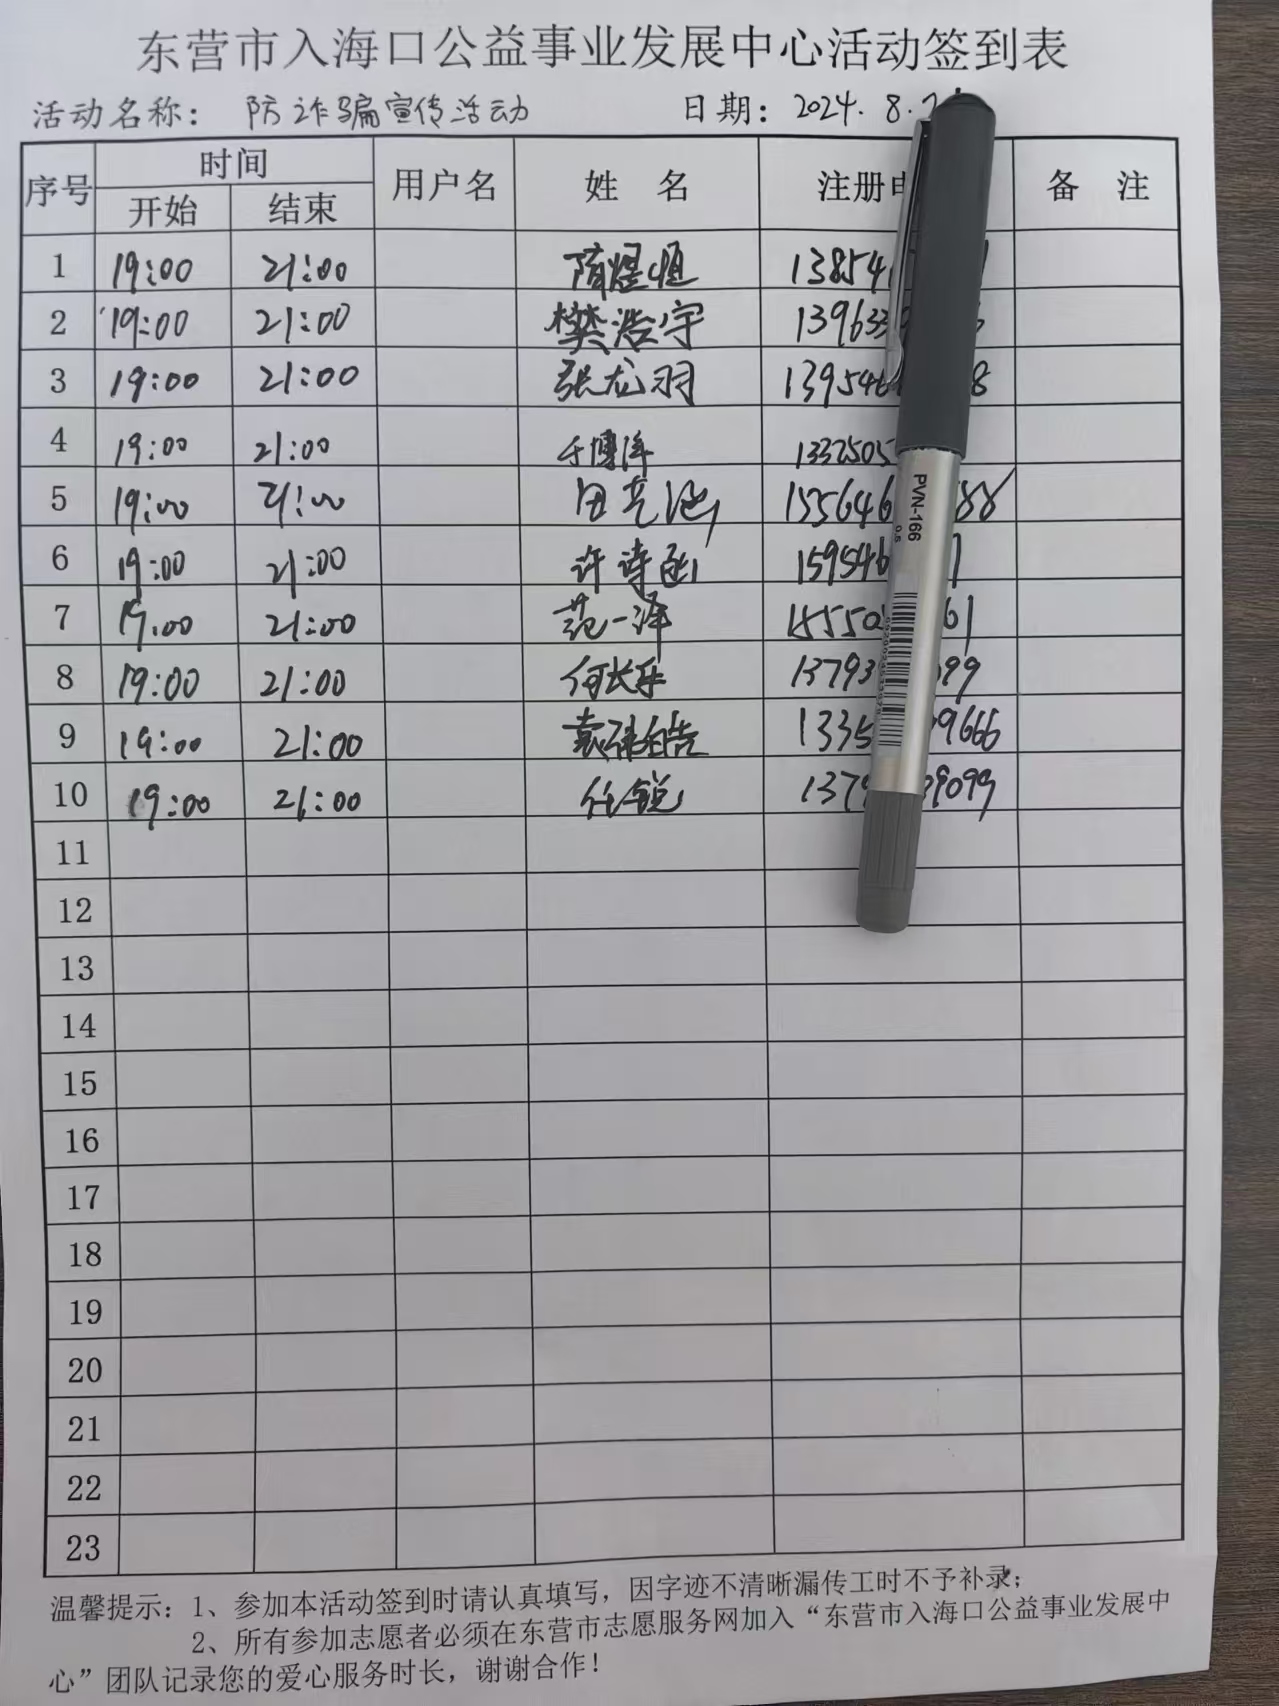 东营市入海口公益事业发展中心活动签到表
活动名称： 防诈骗宣传活动 日期： 2024.8.2
序号 时间 用户名 姓 名 注册 备 注
开始 结束
1 19:00 21:00 隋煜恒 13854
2 19:00 21:00 樊浩宇 139633
3 19:00 21:00 张龙羽 139546 8
4 19:00 21:00 于博洋 1332505
5 19:00 21:00 田 155646 88
6 19:00 21:00 许诗函 159546 1
7 19:00 21:00 范一泽 15550 61
8 19:00 21:00 何长乐 13793 99
9 19:00 21:00 袁 1335 9666
10 19:00 21:00 任锐 137 9099
11
12
13
14
15
16
17
18
19
20
21
22
23
PVN-166
0.5
温馨提示：1、参加本活动签到时请认真填写，因字迹不清晰漏传工时不予补录；
2、所有参加志愿者必须在东营市志愿服务网加入“东营市入海口公益事业发展中
心”团队记录您的爱心服务时长，谢谢合作！